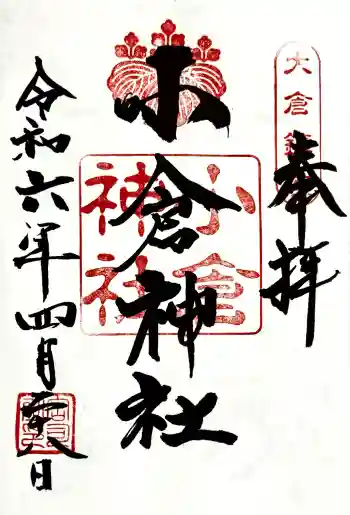 奉拝
大倉
小倉神社
小倉
神社
令和六年四月二十八日